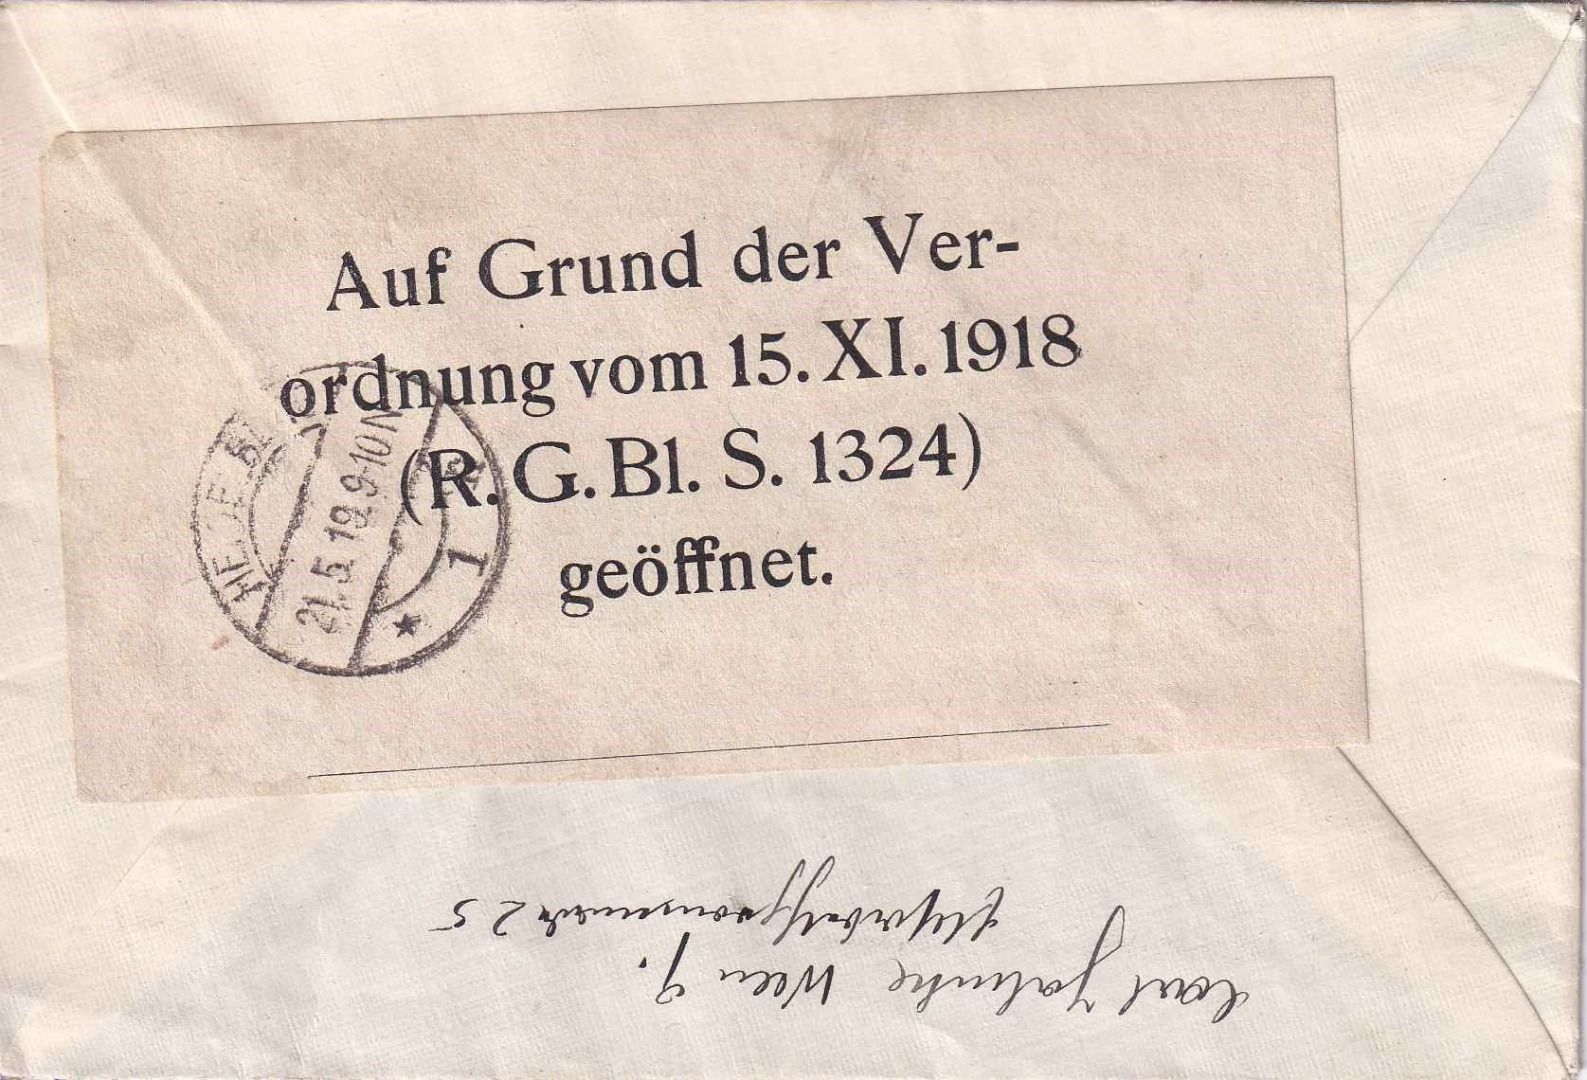 Auf Grund der Ver-
ordnung vom 15. XI. 1918
(R. G. Bl. S. 1324)
geöffnet.
21.5.19. 9-10 N
* 1
Carl Wien 9.
25